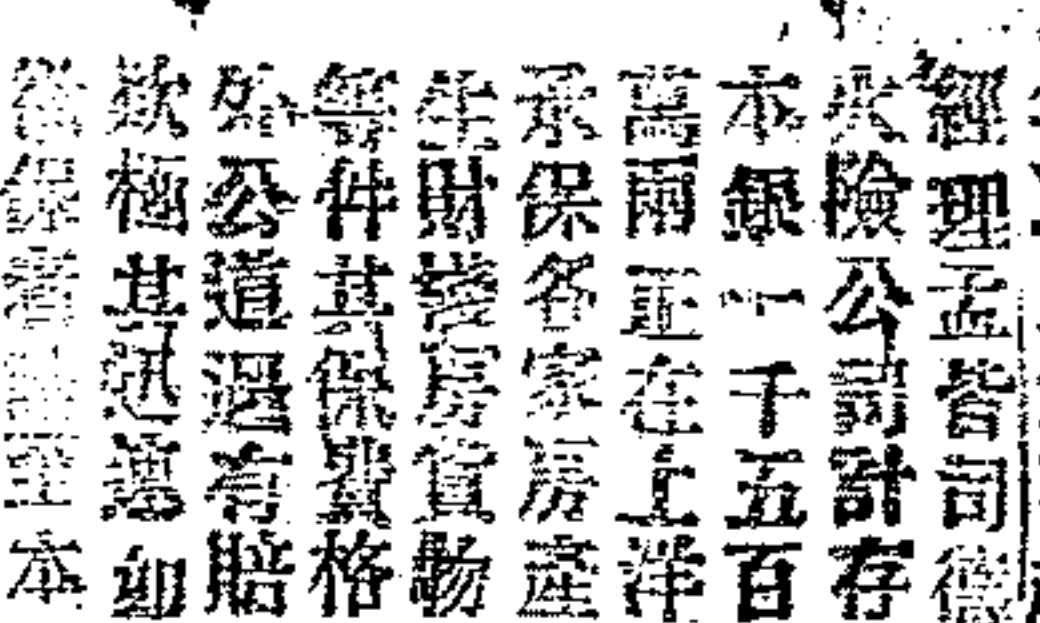 經理孟皆司德
火險公司計存
本銀一千五百
萬兩正在上洋
承保各家房產
生財貨房貨物
等件其保費格
外公道遇有賠
欵極其迅速如
欲保者至本